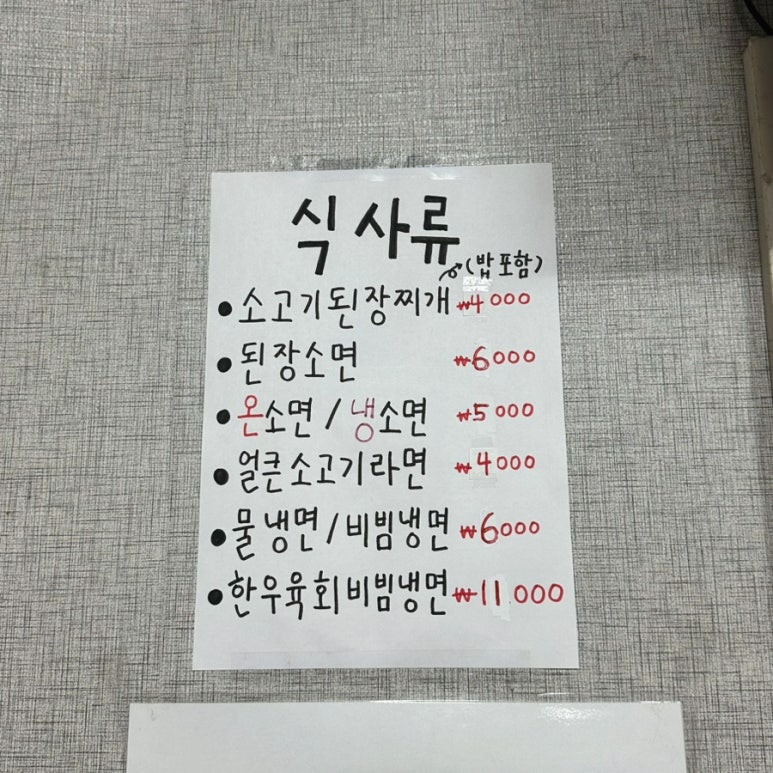 식사류
(밥포함)
• 소고기된장찌개 ₩4000
• 된장소면 ₩6000
• 온소면 / 냉소면 ₩5000
• 얼큰소고기라면 ₩4000
• 물냉면 / 비빔냉면 ₩6000
• 한우육회비빔냉면 ₩11000